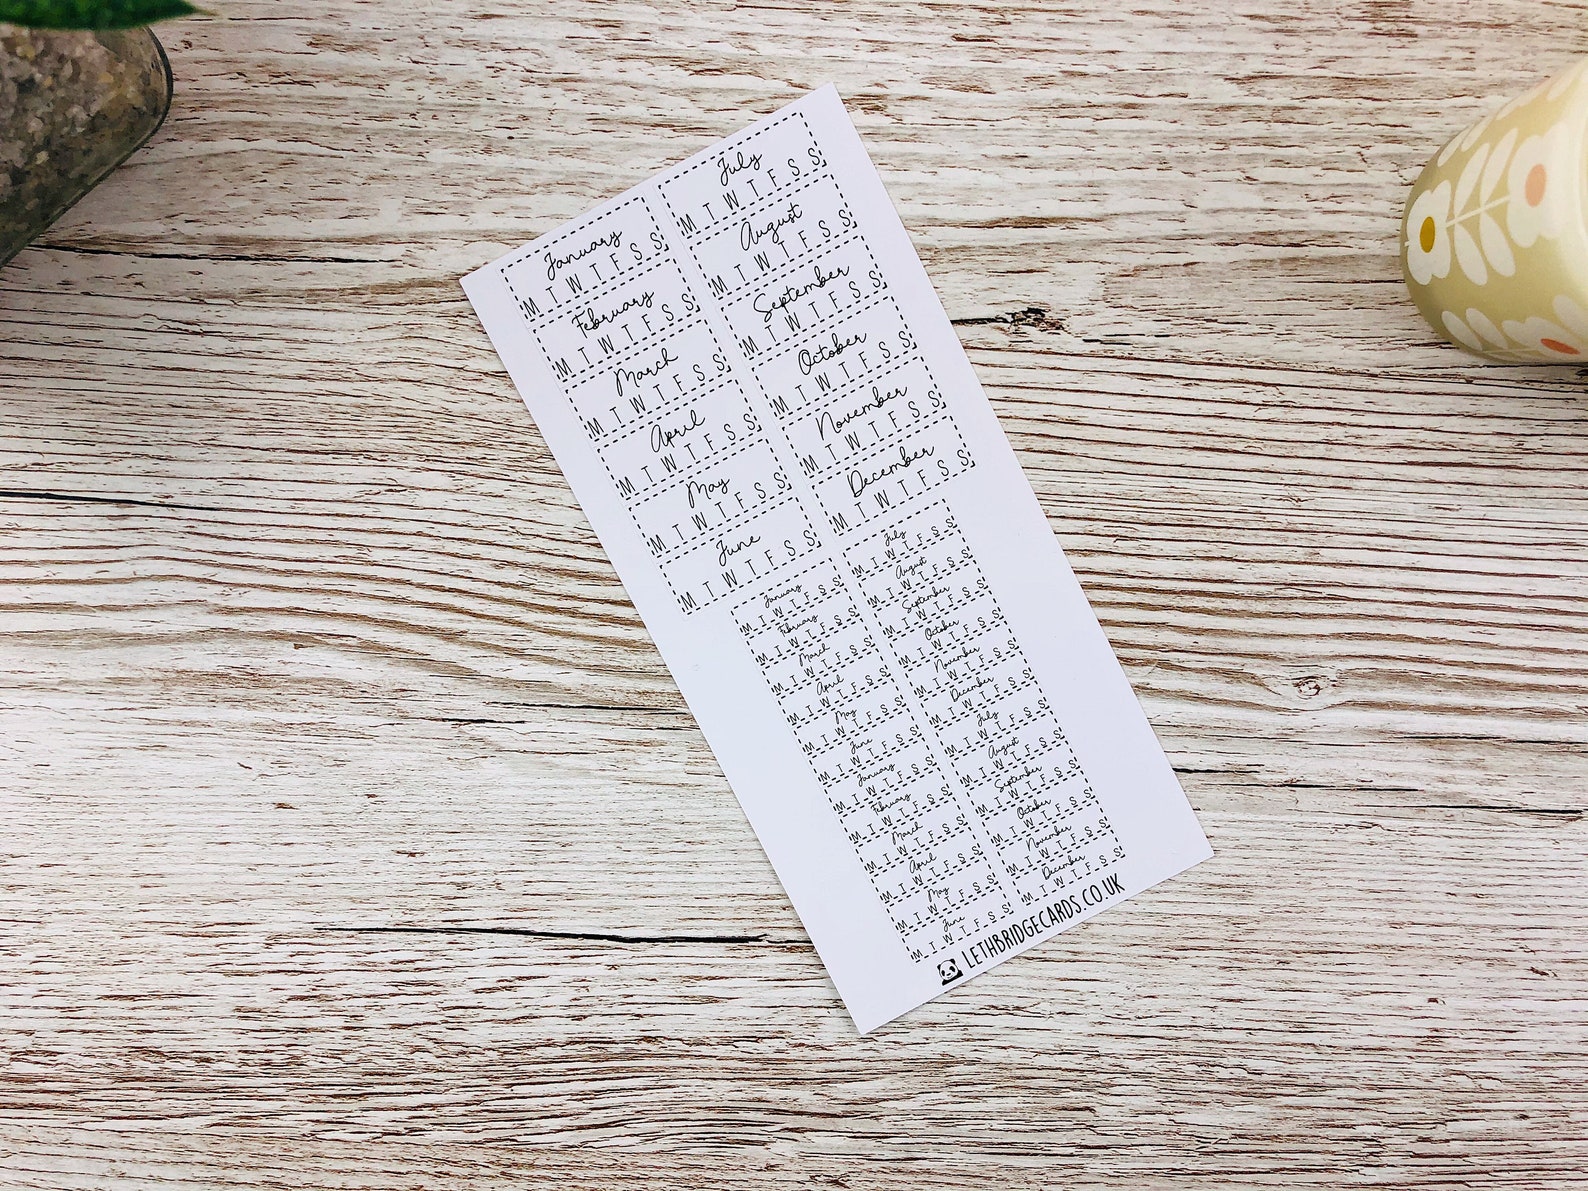 January
M T W T F S S
February
M T W T F S S
March
M T W T F S S
April
M T W T F S S
May
M T W T F S S
June
M T W T F S S
July
M T W T F S S
August
M T W T F S S
September
M T W T F S S
October
M T W T F S S
November
M T W T F S S
December
M T W T F S S
January
M T W T F S S
February
M T W T F S S
March
M T W T F S S
April
M T W T F S S
May
M T W T F S S
June
M T W T F S S
January
M T W T F S S
February
M T W T F S S
March
M T W T F S S
April
M T W T F S S
May
M T W T F S S
June
M T W T F S S
July
M T W T F S S
August
M T W T F S S
September
M T W T F S S
October
M T W T F S S
November
M T W T F S S
December
M T W T F S S
July
M T W T F S S
August
M T W T F S S
September
M T W T F S S
October
M T W T F S S
November
M T W T F S S
December
M T W T F S S
LETHBRIDGECARDS.CO.UK